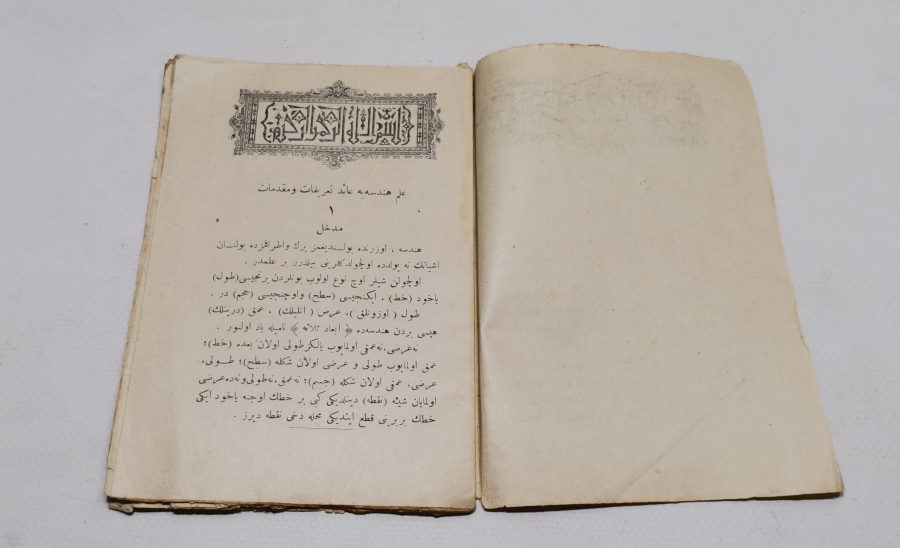 بسم الله الرحمن الرحيم
علم هندسه‌يه عائد تعريفات و مقدمات
١
مدخل
هندسه ، اوزرنده بولنديغمز يرك واطرافمزده بولنان
اشيانك نه يولده اولچولدكلرينى بيلدرر بر علمدر .
اولچولن شيلر اوچ نوع اولوب بونلردن برنجيسى (طول)
ياخود (خط) ، ايكنجيسى (سطح) واوچنجيسى (حجم) در .
طول ( اوزونلق ) ، عرض ( انليلك) ، عمق (درينلك)
هپسى بردن هندسه‌ده « ابعاد ثلاثه » ناميله ياد اولنور .
نه‌عرضى، نه‌عمقى اولمايوب يالكز طولى اولان بعده (خط) ؛
عمقى اولمايوب طولى و عرضى اولان شكله (سطح) ؛ طـولى،
عرضى، عمقى اولان شكله (جسم) ؛ نه‌عمق، نه‌طولى ونه‌ده عرضى
اولمايان شيئه (نقطه) دينلديكى كبى بر خطك اوجنه ياخود ايكى
خطك بربرينى قطع ايتديكى محله دخى نقطه ديرز .